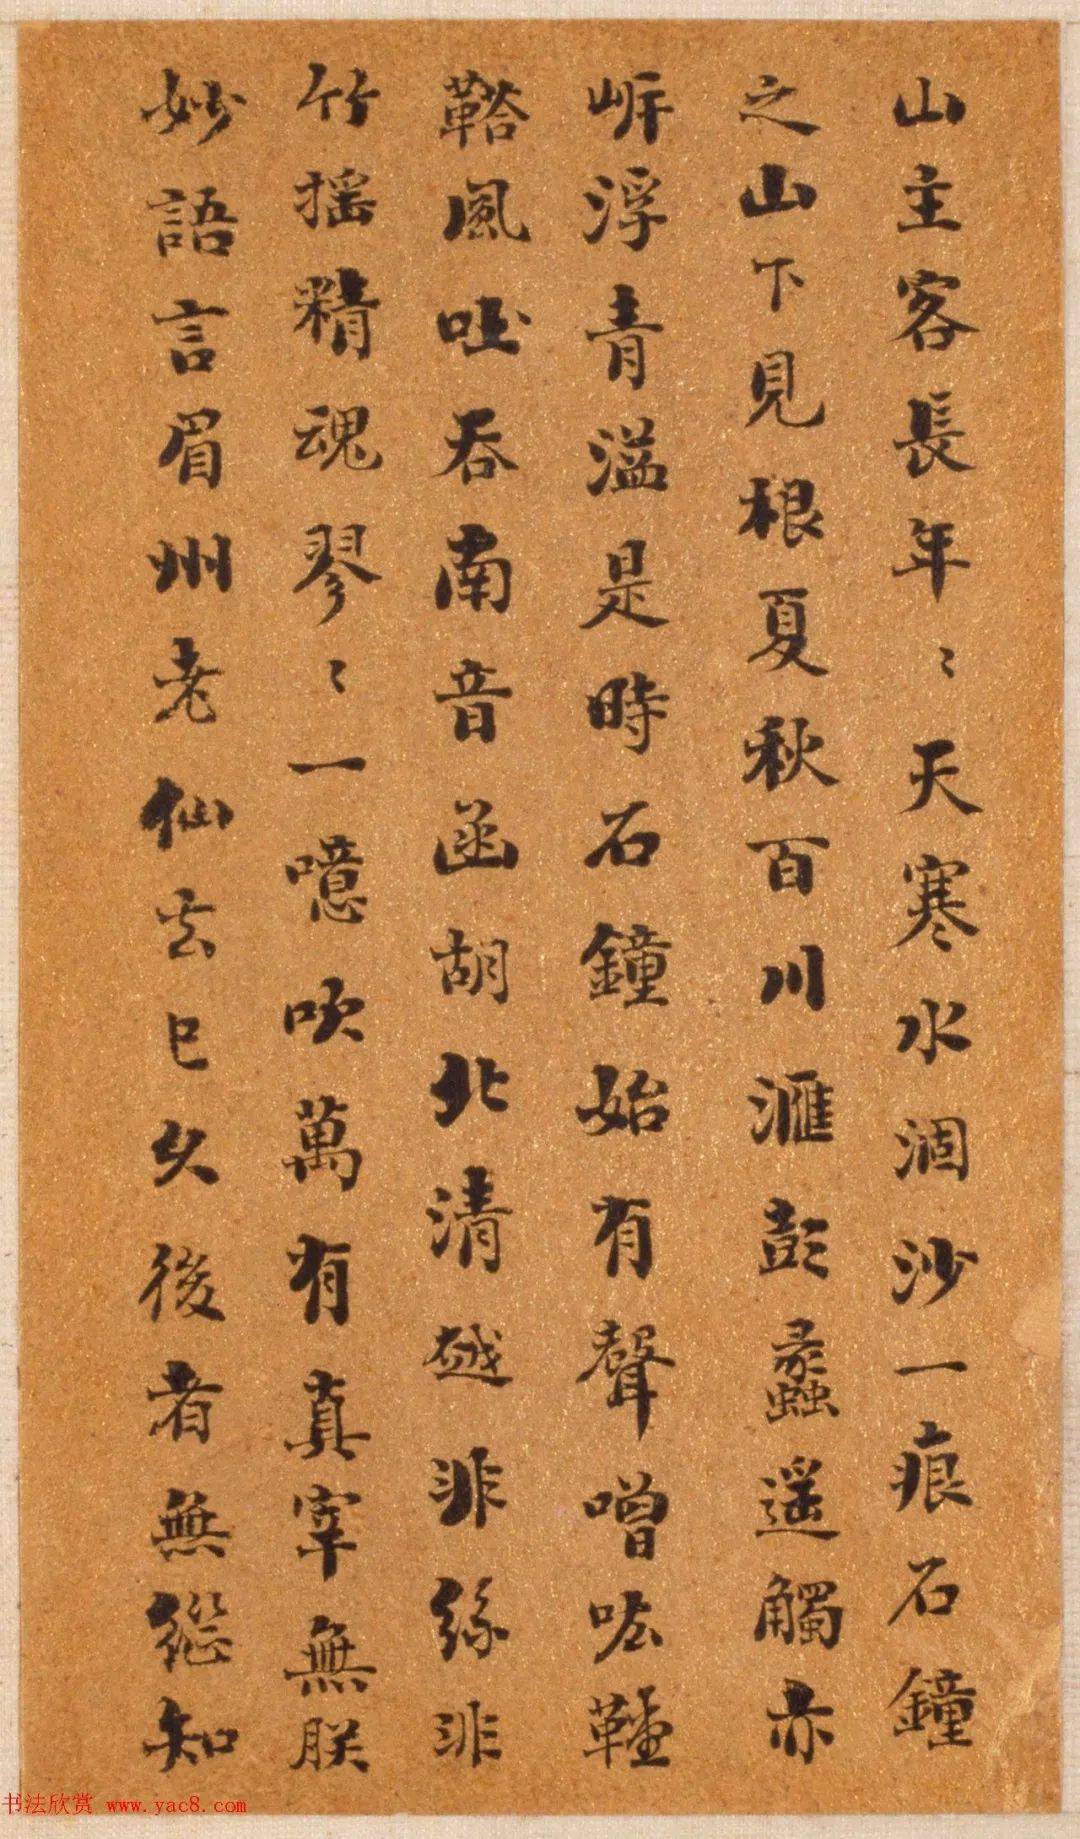 山主客長年〻天寒水涸沙一痕石鐘
之山下見根夏秋百川滙彭蠡遥觸赤
岸浮青溢是時石鐘始有聲噌吰鞺
鞳風吐吞南音函胡北清越非絲非
竹摇精魂翏〻一噫吹萬有真宰無朕
妙語言眉州老仙去已久後者無從知
书法欣赏 www.yac8.com